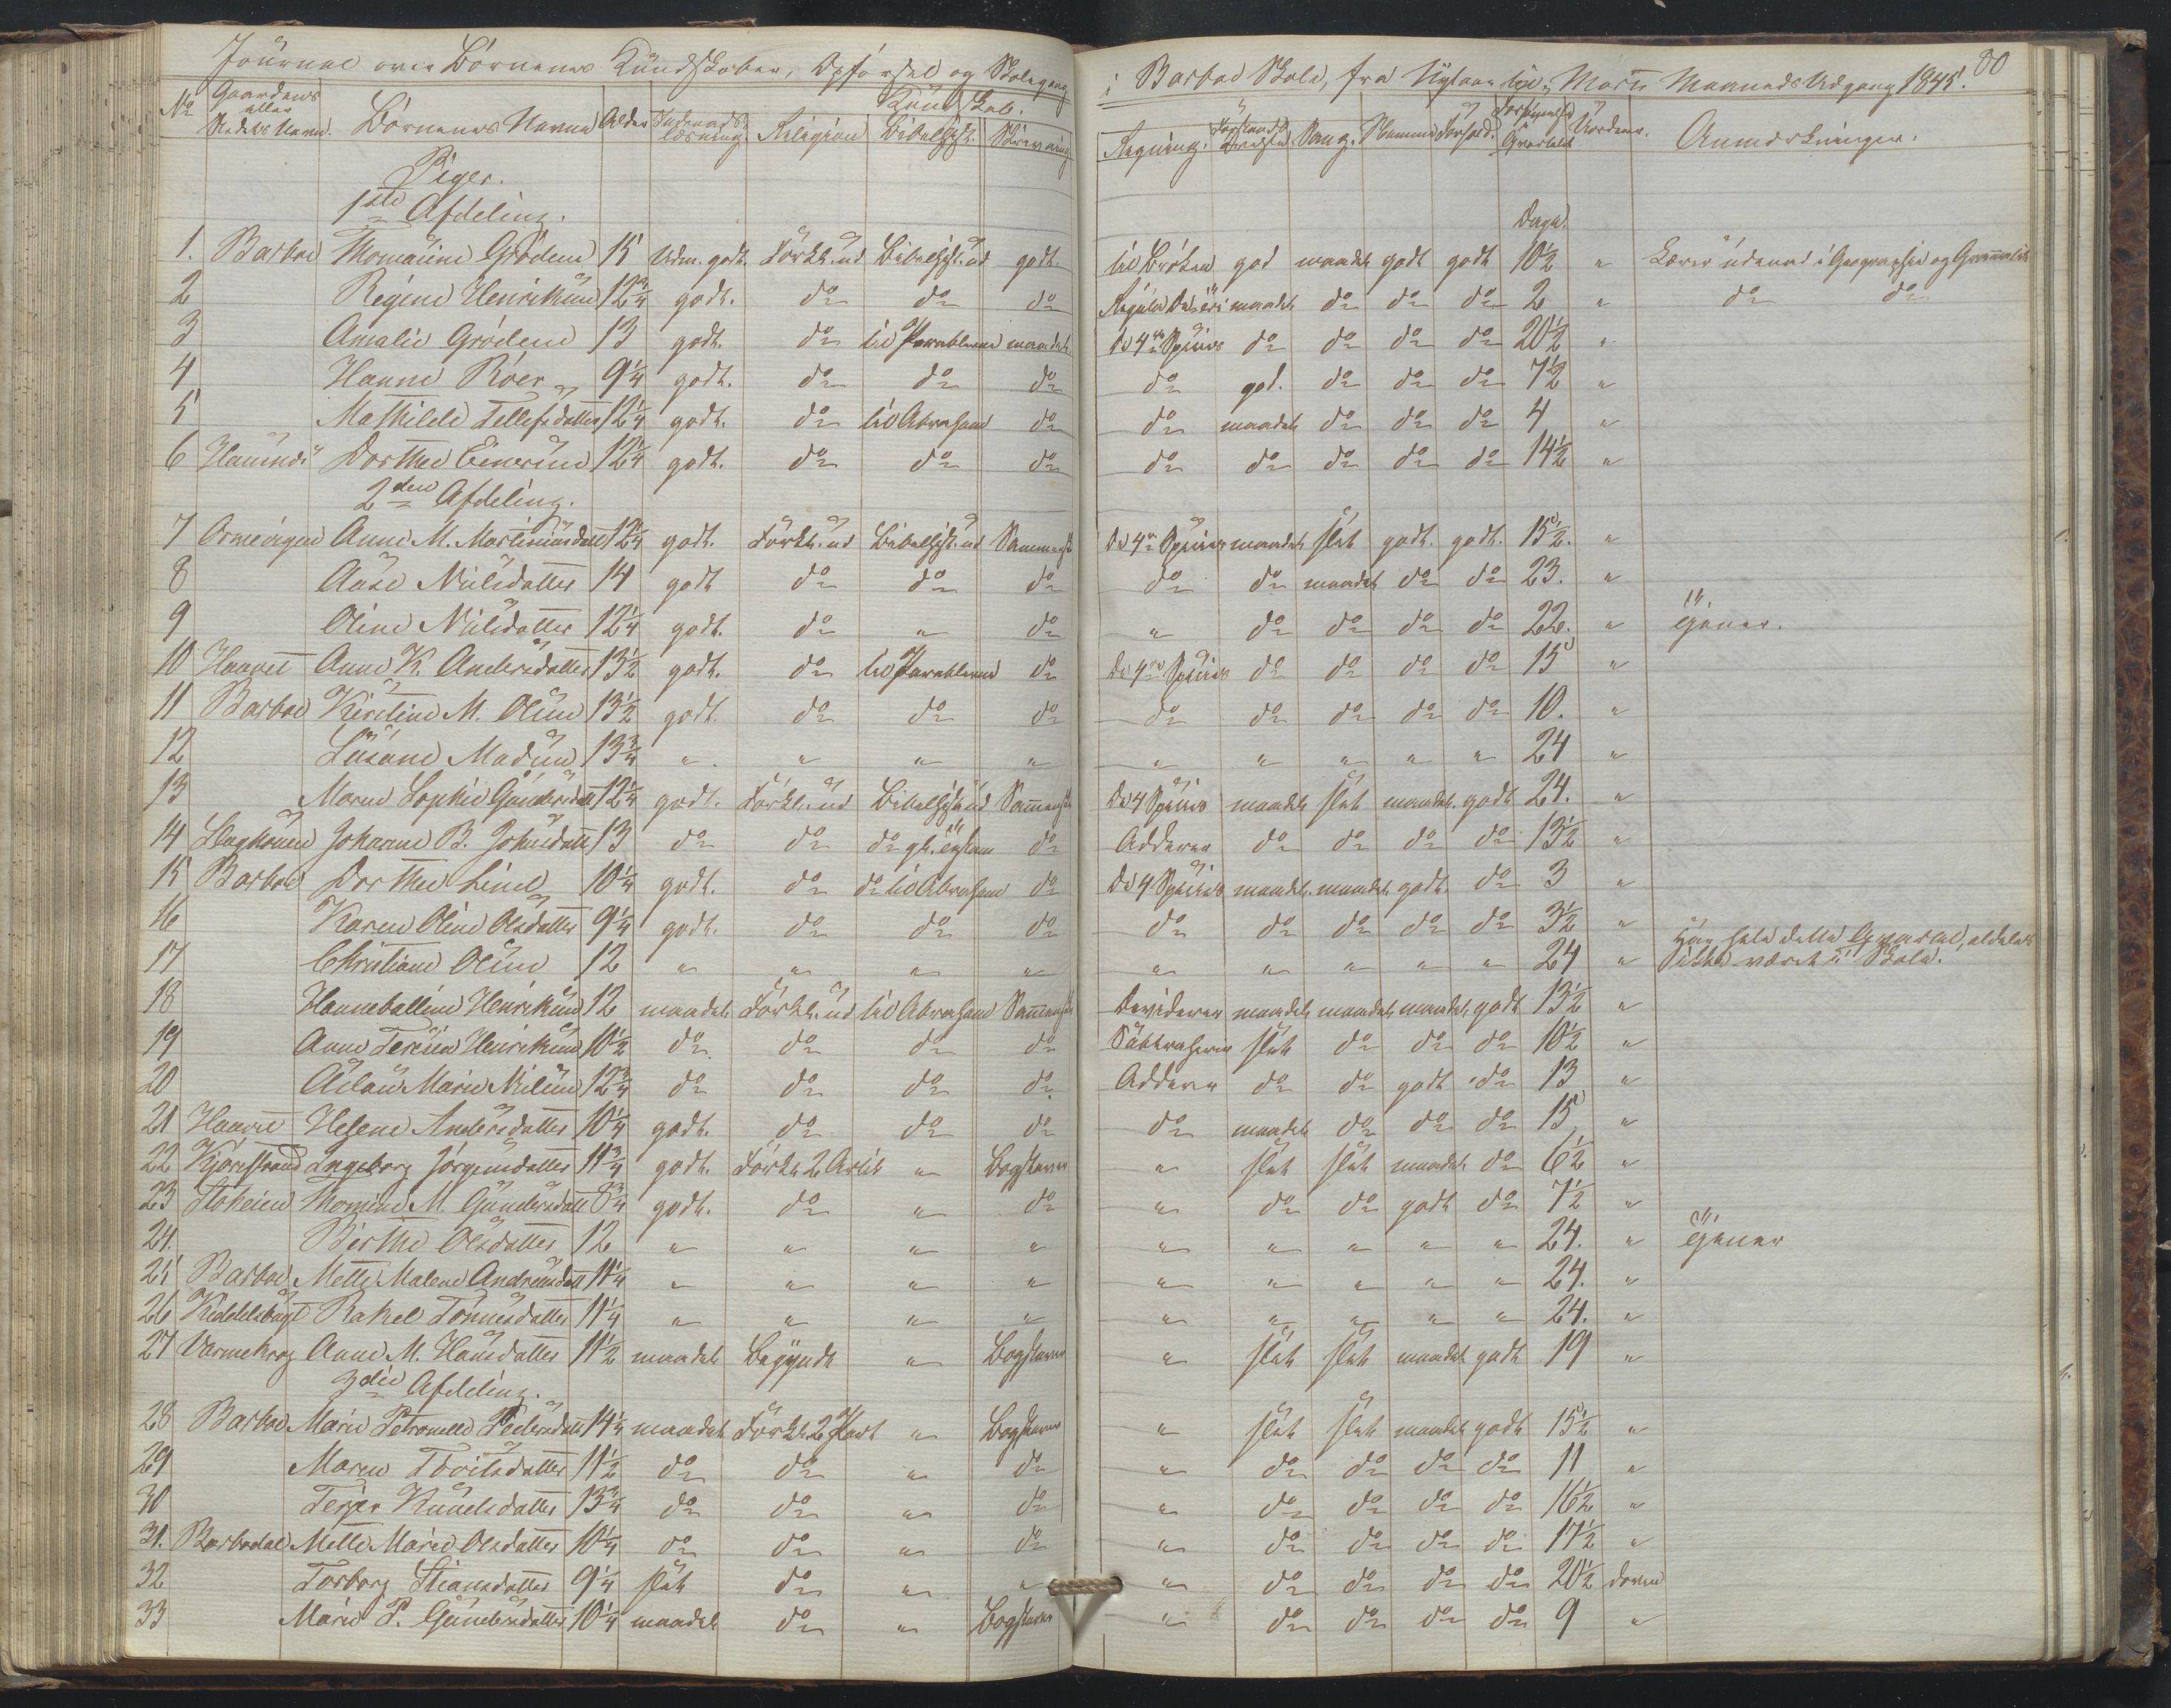 Journal over Børnenes Kundskaber, Opførsel og Skolegang i Barboe Skole, fra Nytaar til Marts Maaneds Udgang 1845. 80
No Gaardens eller Stedets Navn. Børnenes Navne Alder Indenadslæsning. Religion Kundskab. Bibelhist. Skrivning Regning. Sang. Stemme Forhold. Anmærkninger.
Piger.
1ste Afdeling.
Dage.
1. Barboe Thomasine Grødem 15 Udm. godt. Forkl. ud Bibelhist. ud godt. til Brøken god maadel. godt godt 10½ " Lærer udenad i Geographie og Gramatik
2 Regine Henriksen 12¾ godt. do do do Regula Detri maadel. do do do 2 " do do
3 Amalie Grødem 13 godt. do til Parablerne maadel. De 4re Species do do do do 20½ "
4 Hanne Röer 9¼ godt. do do do do god. do do do 7½ "
5 Mathilde Tellefsdatter 12¼ godt. do til Abraham do do maadel. do do do 4 "
6 Dorthea 12¼ godt. do do do do do do do do 14½ "
2den Afdeling.
7 Ormevigen Anne M. Mortensdatt 12¼ godt. Forkl. ud Bibelhist. ud De 4re Species maadel. slet godt. godt. 15½. "
8 Aase Nielsdatter 14 godt do do do do do maadel. do do 23. "
9 Oline Nielsdatter 12¼ godt. do " do " do do do do 22. "
10 Haavet Anne K. Andersdatter 13½ godt. do til Parablerne do De 4re Species do do do do 15 "
11 Barboe Kirstine M. Olsen 13½ godt. do do do do do do do do 10. "
12 Susane Madsen 13¾ " " " " " " " " " 24 "
13 Maren Sophie Gundersdatt 12¼ godt. Forkl. ud Bibelhist. ud De 4 Species maadel. slet maadel. godt 24. "
14 Johanne B. Johnsdatt 13 do do do Adderer do do do do 13½ "
15 Barboe Dorthea Lind 10¼ godt. do do til Abraham do De 4 Species maadel. maadel. godt. do 3 "
16 Karen Oline Olsdatter 9¼ godt. do do do do do do do do 3½ "
17 Christiane Olsen 12 " " " " " " " " " 24 " Har hele dette Qvartal aldeles ikke været i Skole.
18 Henriksen 12 maadel. Forkl. ud til Abraham Deviderer maadel. maadel. maadel. godt 13½ "
19 Anne Teresia Henriksen 10½ do do do do slet do do do 10½ "
20 Marie Nielsen 12¾ do do do do Adderer do do godt do 13 "
21 Haavet Helene Andersdatter 10¼ godt. do do do do maadel. do do do 15 "
22 Ingeborg Jørgensdatter 11¾ godt. Forkl. 2 Artik " Bogstaver " slet slet maadel. do 6½ "
23 Stoheien Thomine M. Gundersdatt 8¾ godt. do " do " do do godt do 7½ "
24. Birthe Olsdatter 12 " " " " " " " " " 24. " tjener
25 Barboe Mette Malene Andreasdatt 11¼ " " " " " " " " " 24. "
26 Rakel Tønnesdatter 11¼ " " " " " " " " " 24. "
27 Varmekrog Anne M. Hansdatter 11½ maadel. Begyndt " Bogstaver " slet slet maadel. godt 19 "
3die Afdeling.
28 Barboe Marie Petronelle Pedersdatt 14¼ maadel. Forkl. 2 Part " Bogstaver " slet slet maadel. godt 15½ "
29 Maren 11½ do do " do " do do do do 11 "
30 Knudsdatter 13¾ do do " do " do do do do 16½ "
31. Barbodal Mette Marie Olsdatter 10¼ do do " do " do do do do 17½ "
32 Torborg Stiansdatter 9¼ slet do " " " do do do do 20½ doven
33 Marie P. Gundersdatter 10¼ maadel. do " Bogstaver " do do do do 9 "